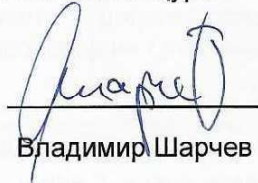 Владимир Шарчев